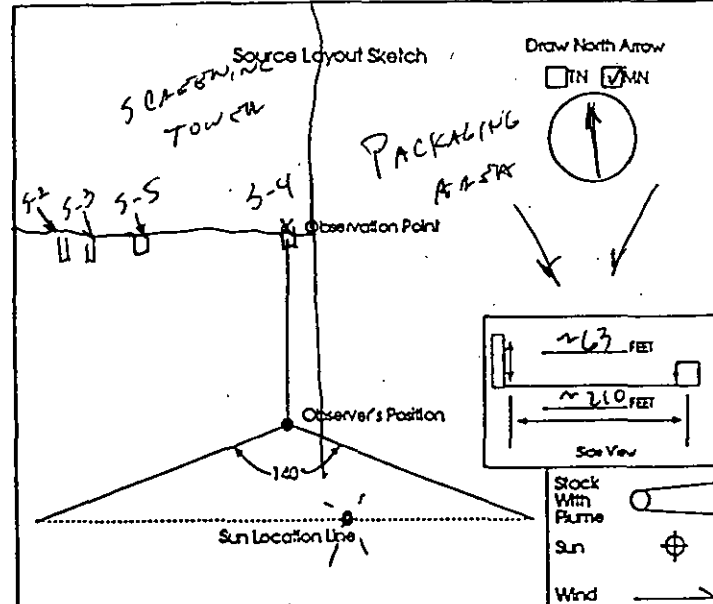 Source Layout Sketch
Draw North Arrow
TN MN
SCREENING
TOWER
PACKAGING
AREA
S-2 S-3 S-5 S-4
X Observation Point
~63 FEET
~210 FEET
Side View
Observer's Position
140
Sun Location Line
Stack
With
Plume
Sun
Wind